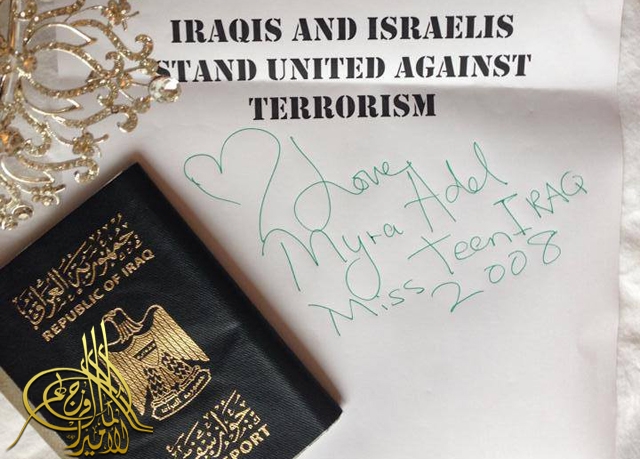 IRAQIS AND ISRAELIS
STAND UNITED AGAINST
TERRORISM
Love,
Myra Adel
Miss Teen IRAQ
2008
جمهورية العراق
REPUBLIC OF IRAQ
جواز سفر
PORT